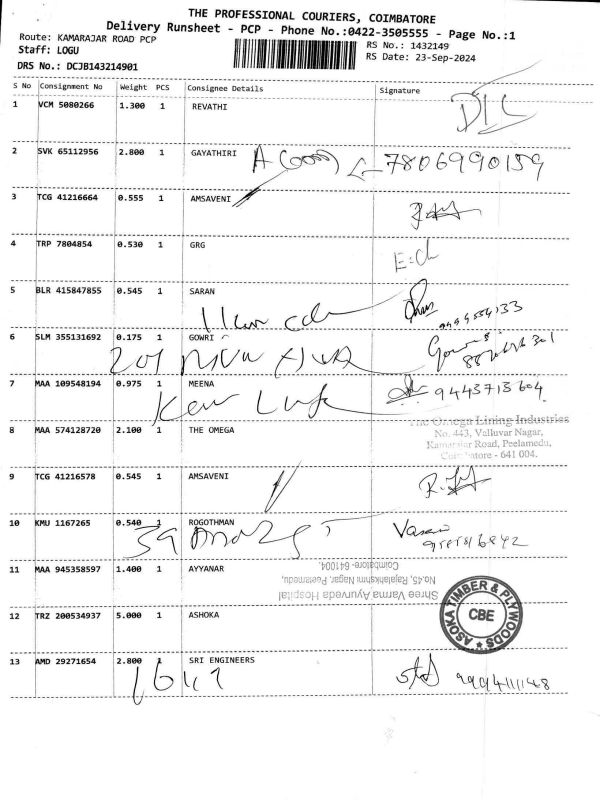 THE PROFESSIONAL COURIERS, COIMBATORE
Delivery Runsheet - PCP - Phone No.:0422-3505555 - Page No.:1
Route: KAMARAJAR ROAD PCP
RS No.: 1432149
Staff: LOGU
RS Date: 23-Sep-2024
DRS No.: DCJB143214901
S No Consignment No Weight PCS Consignee Details Signature
1 VCM 5080266 1.300 1 REVATHI
2 SVK 65112956 2.800 1 GAYATHIRI 7806990159
3 TCG 41216664 0.555 1 AMSAVENI
4 TRP 7804854 0.530 1 GRG
5 BLR 415847855 0.545 1 SARAN
6 SLM 355131692 0.175 1 GOWRI
7 MAA 109548194 0.975 1 MEENA 9443713604
8 MAA 574128720 2.100 1 THE OMEGA
The Omega Lining Industries
No. 443, Valluvar Nagar,
Kamarajar Road, Peelamedu,
Coimbatore - 641 004.
9 TCG 41216578 0.545 1 AMSAVENI
10 KMU 1167265 0.540 1 ROGOTHMAN
11 MAA 945358597 1.400 1 AYYANAR
Shree Varma Ayurveda Hospital
No.45, Rajalakshmi Nagar, Peelamedu,
Coimbatore-641004.
12 TRZ 200534937 5.000 1 ASHOKA
ASOKA TIMBER & PLYWOODS
CBE
13 AMD 29271654 2.800 1 SRI ENGINEERS